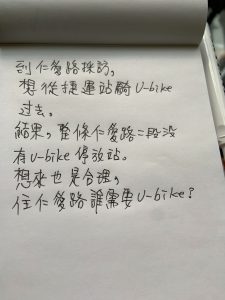 到仁愛路採訪，
想從捷運站騎U-bike
過去。
結果，整條仁愛路二段沒
有U-bike停放站。
想來也是合理，
住仁愛路誰需要U-bike？